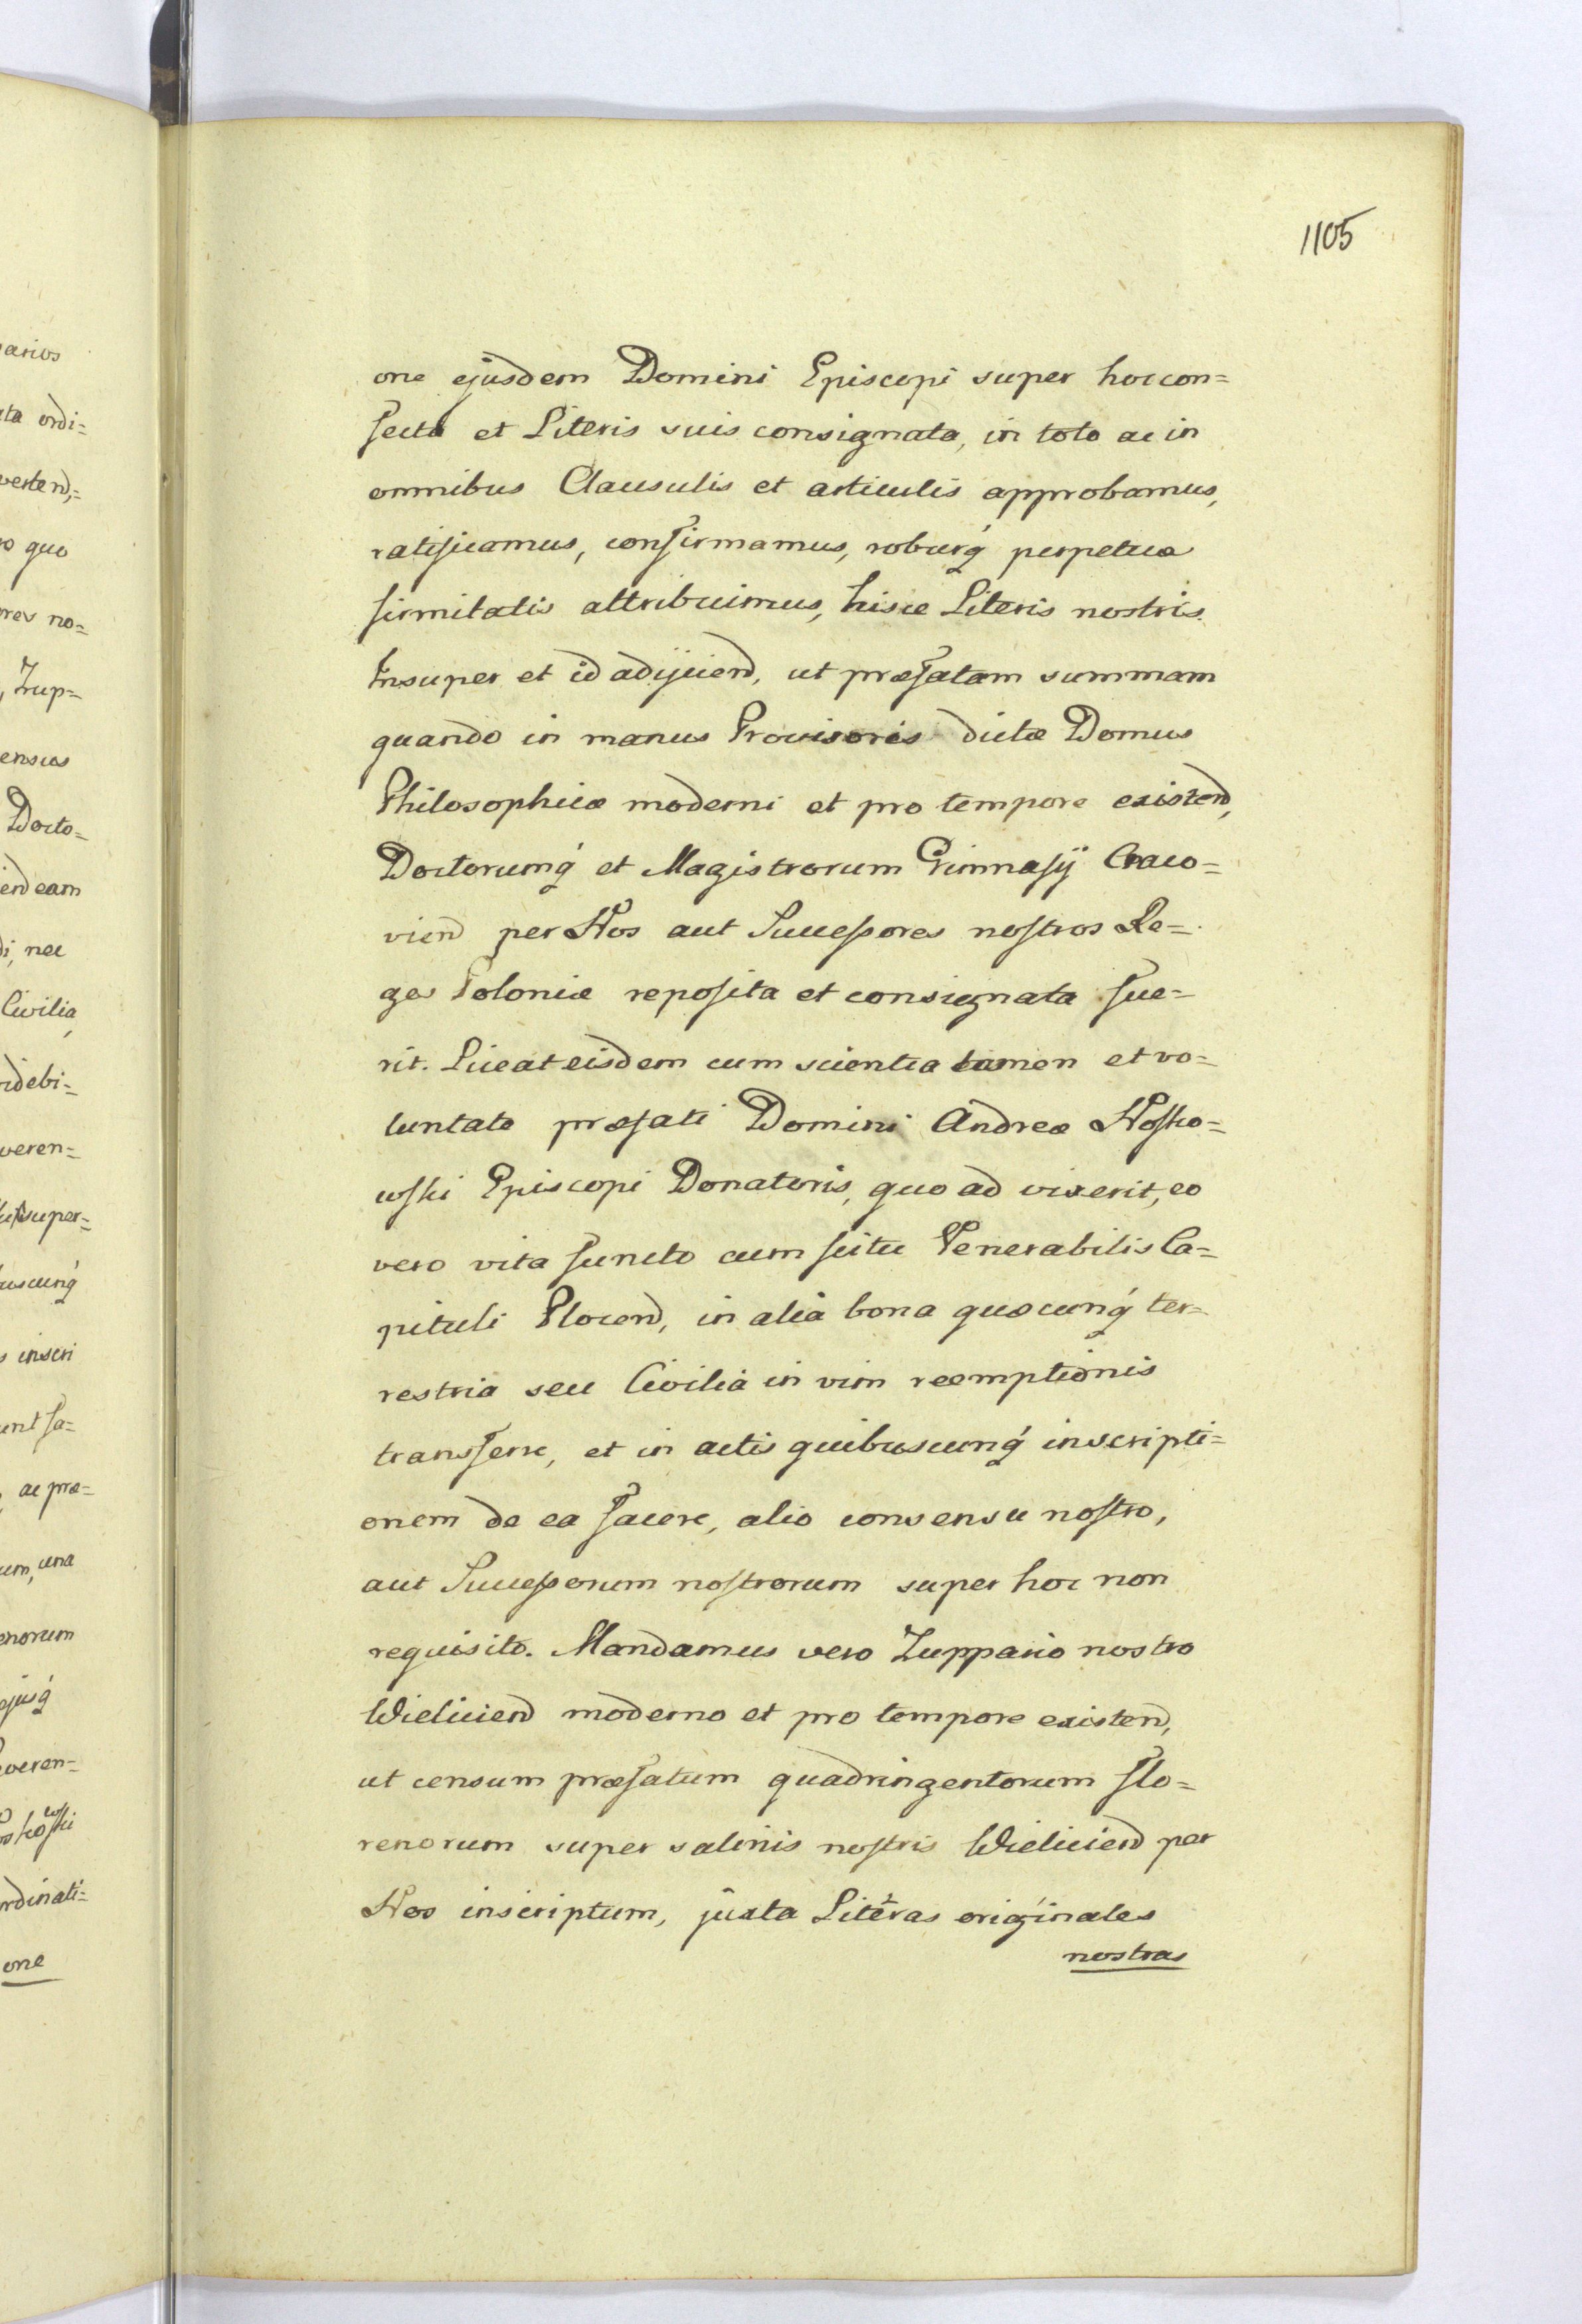 1105
one ejusdem Domini Episcopi super hoc con=
fecta et Literis suis consignata, in toto ac in
omnibus Clausulis et articulis approbamus,
ratificamus, confirmamus, roburq́ perpetuæ
firmitatis attribuimus, hisce Literis nostris.
Insuper et id adijciend, ut præfatam summam
quando in manus Provisoris dictæ Domus
Philosophicæ moderni et pro tempore existend,
Doctorumq́ et Magistrorum Gimnasÿ Craco=
viend per Nos aut Successores nostros Re=
ges Poloniæ reposita et consignata fue=
rit. Liceat eisdem cum scientia tamen et vo=
luntate præfati Domini Andreæ Nosko=
wski Episcopi Donatoris, quo ad vixerit, eo
vero vita functo cum scitu Venerabilis Ca=
pituli Plocend, in alia bona quæcunq́ ter=
restria seu Civilia in vim reemptionis
transferre, et in actis quibuscunq́ inscripti=
onem de ea facere, alio consensu nostro,
aut Successorum nostrorum super hoc non
requisito. Mandamus vero Zuppario nostro
Wieliciend moderno et pro tempore existend,
ut censum præfatum quadringentorum flo=
renorum super salinis nostris Wieliciend per
Nos inscriptum, juxta Literas originales
nostras
arios
ata ordi=
vertend,=
quo
no=
, Zup=
ensus
Docto=
end eam
di, nec
Civilia,
videbi=
veren=
super=
buscunq́
inscri
unt fa=
, ac præ=
um, una
enorum
ejusq́
everen=
ordinati=
one